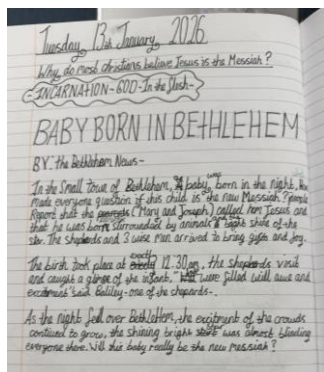 Tuesday 13th January 2026
Why do most christians believe Jesus is the Messiah?
INCARNATION-GOD-In the flesh-
BABY BORN IN BETHLEHEM
BY-the Bethlehem News-
In the small town of Bethlehem, A baby was born in the night,
made everyone question if this child is the new Messiah? people
Report that the (Mary and Joseph) called him Jesus and
that he was born sirrounded by animals a bight shine of the
star. The shepards and 3 wise men arrived to bring gifts and joy.
The birth took place at exactly 12.30am, the shepards visit
and caught a glimse of the infant. "We were filled will awe and
excitment" said Bailey- one of the shepards-.
As the night fell over Bethlehem, the excitment of the crowds
contiued to grow, the shining bright star was almost blinding
everyone there. Will this baby really be the new messiah?